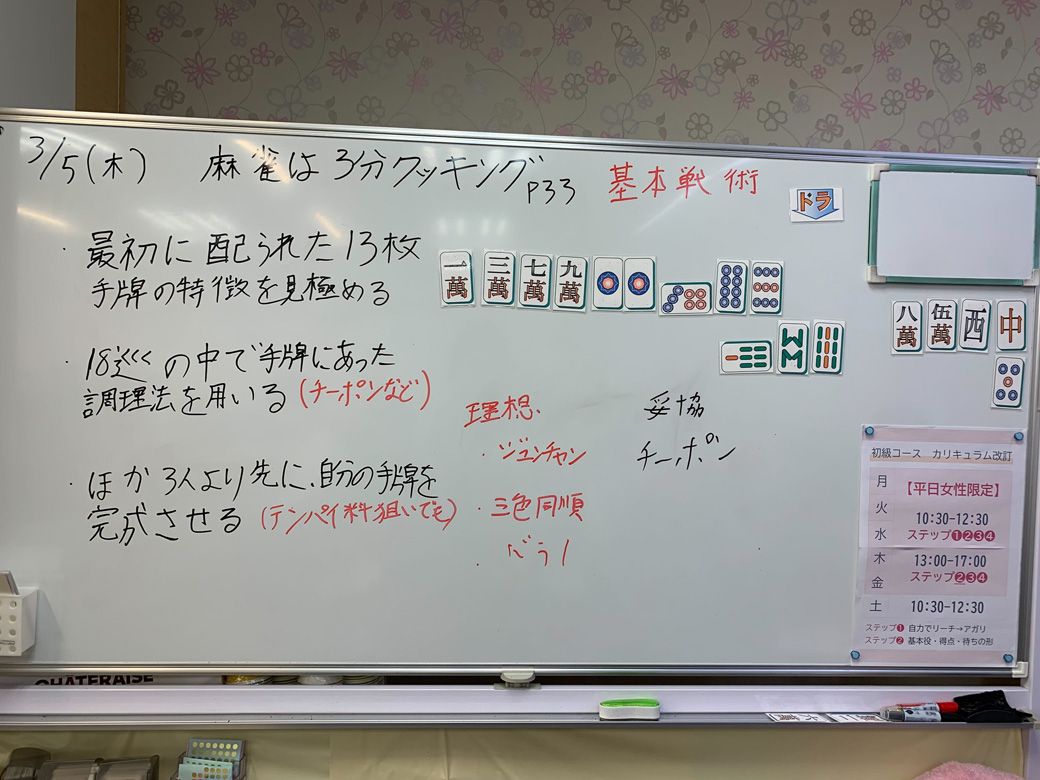 3/5(木) 麻雀は3分クッキング P33 基本戦術
ドラ
・最初に配られた13枚
手牌の特徴を見極める
一萬 三萬 七萬 九萬
八萬 伍萬 西 中
・18巡くの中で手牌にあった
調理法を用いる(チーポンなど)
理想 妥協
・ジュンチャン チーポン
・ほか3人より先に、自分の手牌を
完成させる(テンパイ料狙いでも)
・三色同順
初級コース カリキュラム改訂
月
火
水
木
金
土
【平日女性限定】
10:30-12:30
ステップ❶❷❸❹
13:00-17:00
ステップ❷❸❹
10:30-12:30
ステップ❶ 自力でリーチ→アガリ
ステップ❷ 基本役・得点・待ちの形
CHATERAISE